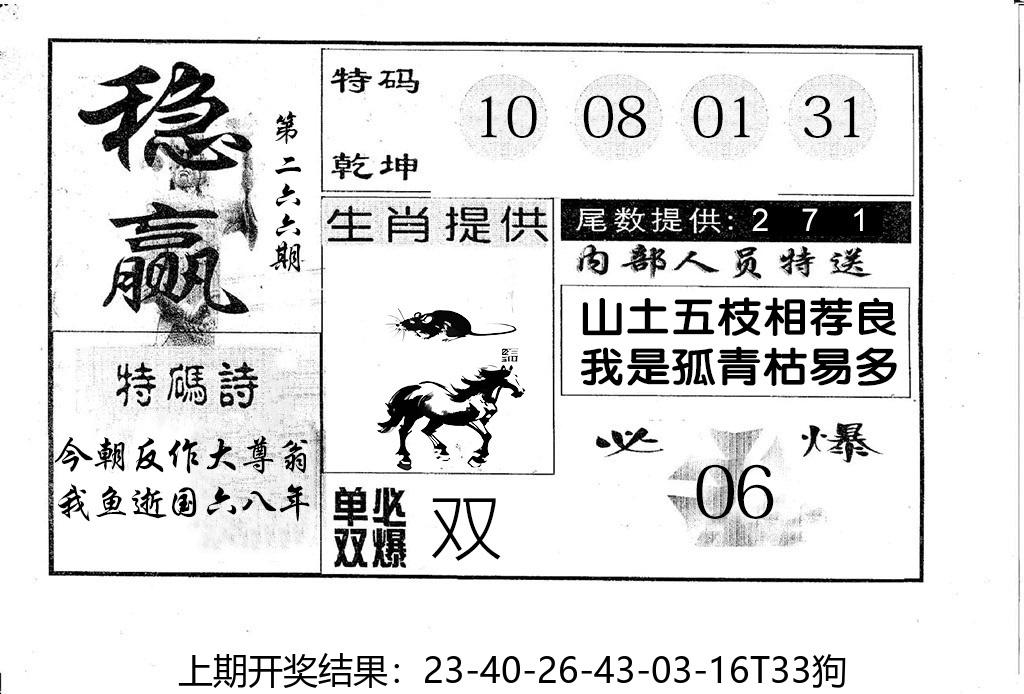 稳赢
第二六六期
特码诗
今朝反作大尊翁
我鱼逝国六八年
特码
乾坤
10 08 01 31
生肖提供
单双必爆
双
尾数提供: 2 7 1
内部人员特送
山土五枝相荐良
我是孤青枯易多
必爆
06
上期开奖结果：23-40-26-43-03-16T33狗